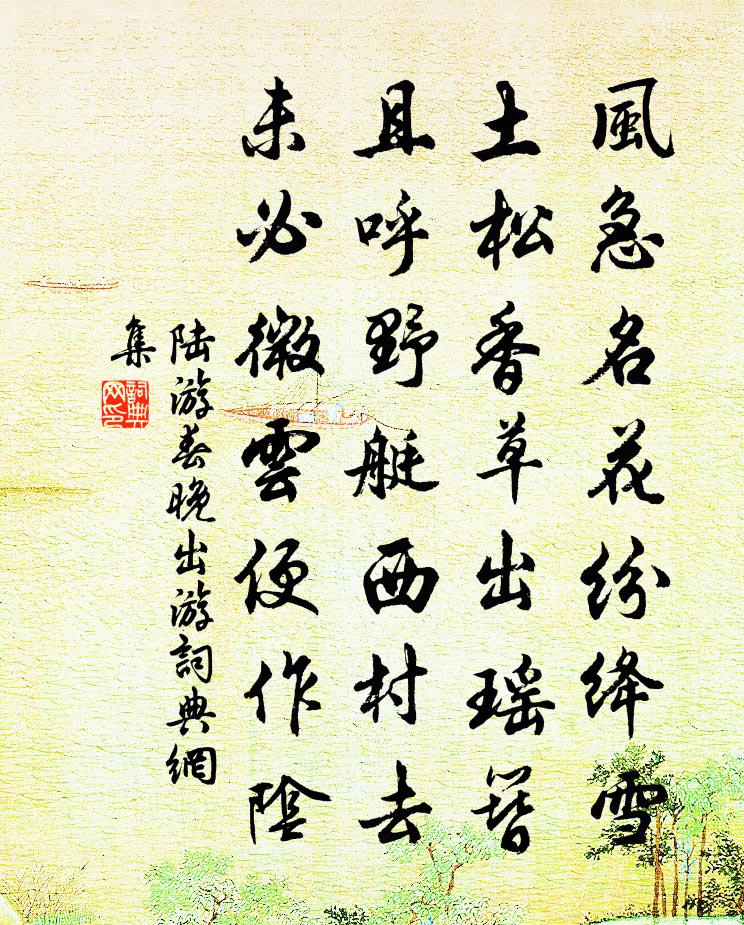 風急名花紛绛雪
土松香草出瑶簪
且呼野艇西村去
未必微雲便作陰
陆游春晚出游詞典網
集
詞典
网印